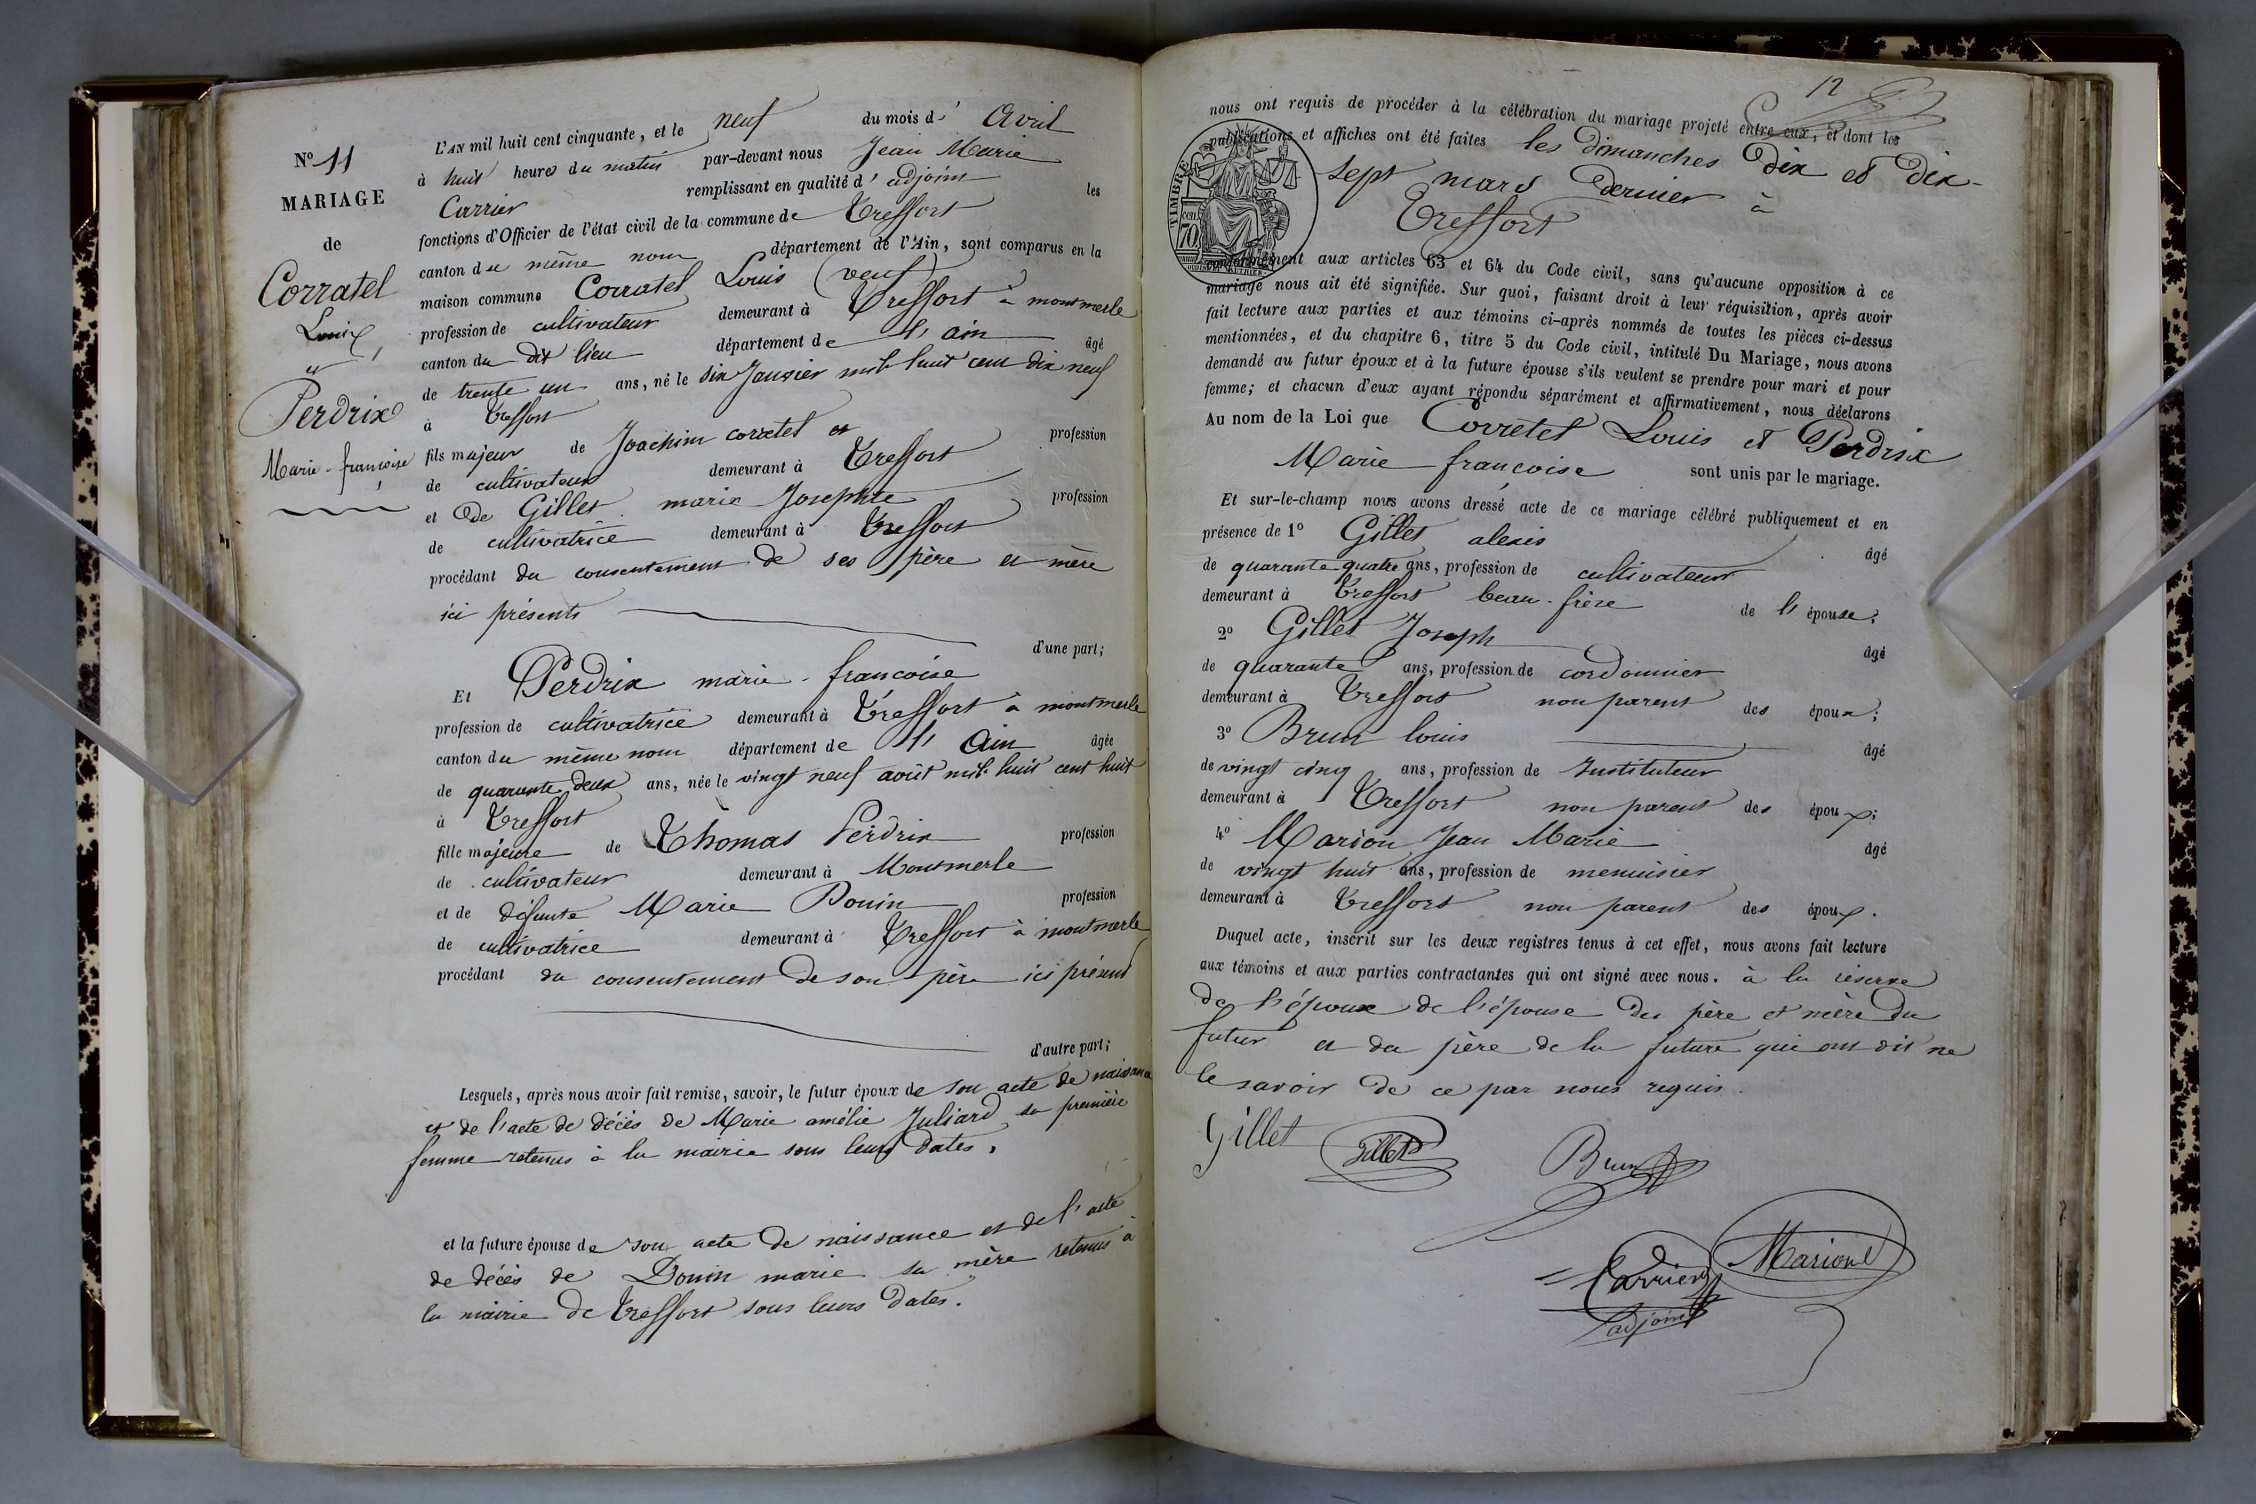 N° 11
MARIAGE
de
Corratel
Louis
et
Perdrix
Marie-françoise
L'AN mil huit cent cinquante, et le neuf du mois d' Avril
à huit heure du matin par-devant nous Jean Marie
Carrier remplissant en qualité d' adjoint les
fonctions d'Officier de l'état civil de la commune de Treffort
canton du même nom département de l'Ain, sont comparus en la
maison commune Corratel Louis (veuf)
profession de cultivateur demeurant à Treffort à montmerle
canton du dit lieu département de l'ain âgé
de trente un ans, né le six Janvier mil huit cent dix neuf
à Treffort
fils majeur de Joachim corratel et profession
de cultivateur demeurant à Treffort
et de Gillet marie Josephte profession
de cultivatrice demeurant à Treffort
procédant du consentement de ses père et mère
ici présents
d'une part;
Et Perdrix marie-francoise
profession de cultivatrice demeurant à Treffort à montmerle
canton du même nom département de l'Ain âgée
de quarante deux ans, née le vingt neuf août mil huit cent huit
à Treffort
fille majeure de Thomas Perdrix profession
de cultivateur demeurant à Montmerle
et de défunte Marie Donin profession
de cultivatrice demeurant à Treffort à montmerle
procédant du consentement de son père ici présent
d'autre part;
Lesquels, après nous avoir fait remise, savoir, le futur époux de son acte de naissance
et de l'acte de décès de Marie amélie Juliard sa première
femme retenus à la mairie sous leurs dates,
et la future épouse de son acte de naissance et de l'acte
de décès de Donin marie sa mère retenus à
la mairie de Treffort sous leurs dates.
12
nous ont requis de procéder à la célébration du mariage projeté entre eux, et dont les
publications et affiches ont été faites les dimanches dix et dix-
sept mars dernier à
Treffort
TIMBRE
70
conformément aux articles 63 et 64 du Code civil, sans qu'aucune opposition à ce
mariage nous ait été signifiée. Sur quoi, faisant droit à leur réquisition, après avoir
fait lecture aux parties et aux témoins ci-après nommés de toutes les pièces ci-dessus
mentionnées, et du chapitre 6, titre 5 du Code civil, intitulé Du Mariage, nous avons
demandé au futur époux et à la future épouse s'ils veulent se prendre pour mari et pour
femme; et chacun d'eux ayant répondu séparément et affirmativement, nous déclarons
Au nom de la Loi que Corretel Louis et Perdrix
Marie francoise sont unis par le mariage.
Et sur-le-champ nous avons dressé acte de ce mariage célébré publiquement et en
présence de 1° Gillet alexis âgé
de quarante quatre ans, profession de cultivateur
demeurant à Treffort beau-frère de l'épouse;
2° Gillet Joseph âgé
de quarante ans, profession de cordonnier
demeurant à Treffort non parent des époux;
3° Brun louis âgé
de vingt cinq ans, profession de Instituteur
demeurant à Treffort non parent des époux;
4° Marion Jean Marie âgé
de vingt huit ans, profession de menuisier
demeurant à Treffort non parent des époux.
Duquel acte, inscrit sur les deux registres tenus à cet effet, nous avons fait lecture
aux témoins et aux parties contractantes qui ont signé avec nous. à la réserve
de l'époux de l'épouse des père et mère du
futur et du père de la future qui ont dit ne
le savoir de ce par nous requis.
Gillet Gillet Brun
Carrier Marion
adjoint